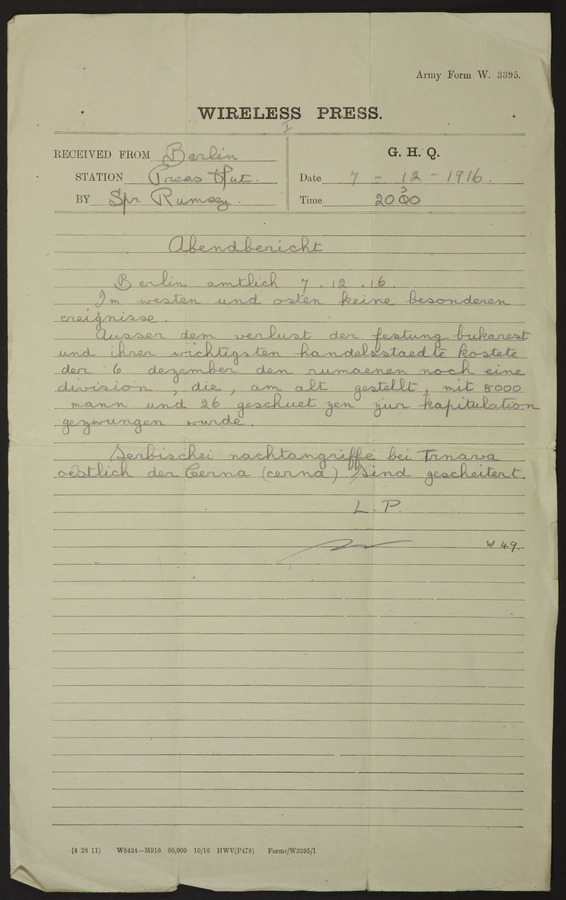 Army Form W. 3395.
WIRELESS PRESS.
I
RECEIVED FROM Berlin
STATION Press Hut.
BY Spr Rumsey.
G. H. Q.
Date 7 - 12 - 1916.
Time 2030
Abendbericht
Berlin amtlich 7.12.16.
Im westen und osten keine besonderen
ereignisse.
Ausser dem verlust der festung bukarest
und ihrer wichtigsten handelsstaedte kostete
der 6 dezember den rumaenen noch eine
division, die, am alt gestellt, mit 8000
mann und 26 geschuetzen zur kapitulation
gezwungen wurde.
Serbischei nachtangriffe bei Trnava
oestlich der Cerna (cerna) sind gescheitert.
L. P.
W 49.
(4 28 11) W8424—M916 80,000 10/16 HWV(P478) Forms/W3395/1